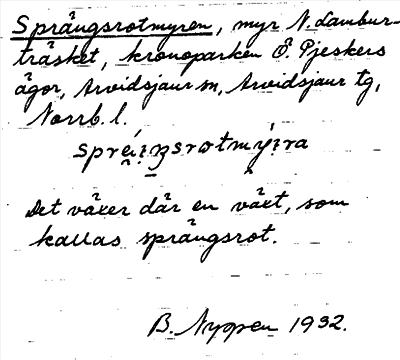 Sprängsrotmyren, myr N. Lambur-
träsket, kronoparken Ö. Pjeskers
ägor, Arvidsjaur sn, Arvidsjaur tg,
Norrb. l.
spré̩i̩ŋsrotmýi̩ra
Det växer där en växt, som
kallas sprängsrot.
B. Nygren 1932.